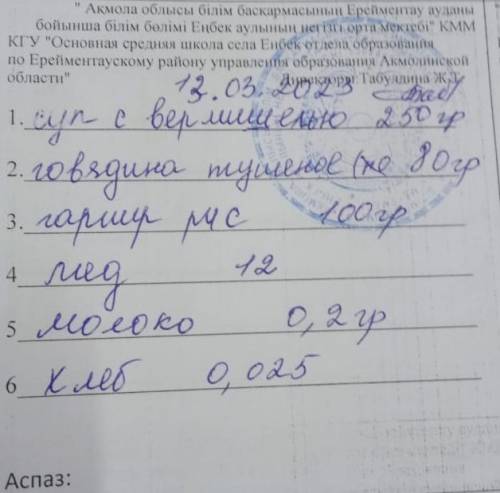 " Ақмола облысы білім басқармасының Ерейментау ауданы
бойынша білім бөлімі Еңбек ауылының негізгі орта мектебі" КММ
КГУ "Основная средняя школа села Енбек отдела образования
по Ерейментаускому району управления образования Акмолинской
области" Директоры: Табулдина Ж.Т.
13.03.2023
1. суп с вермишелью 250гр
2. говядина тушеное 80гр
3. гарнир рис 100гр
4 мед 12
5 молоко 0,2гр
6 хлеб 0,025
Аспаз: